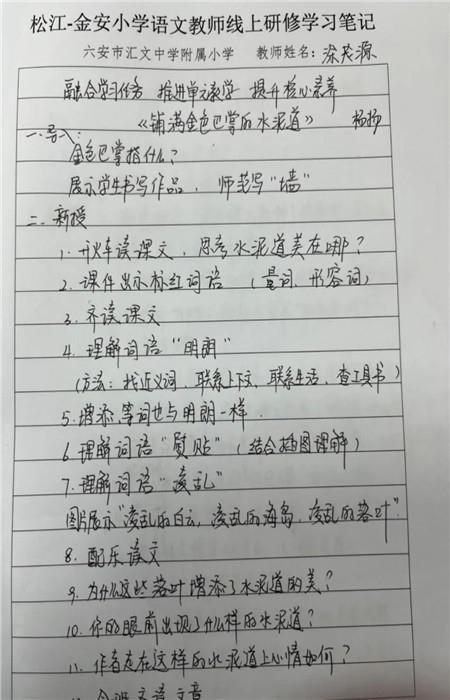 松江-金安小学语文教师线上研修学习笔记
六安市汇文中学附属小学 教师姓名：涂英源
融合学习任务 推进单元教学 提升核心素养
《铺满金色巴掌的水泥道》 杨扬
一、导入：
金色巴掌指什么？
展示学生书写作品，师范写“墙”
二、新授
1. 开火车读课文，思考水泥道美在哪？
2. 课件出示标红词语 （量词、形容词）
3. 齐读课文
4. 理解词语“明朗”
（方法：找近义词，联系上下文，联系生活，查工具书）
5. 增添等词也与明朗一样.
6. 理解词语“熨贴”（结合插图理解）
7. 理解词语“凌乱”
图片展示“凌乱的白云，凌乱的海岛，凌乱的落叶”.
8. 配乐读文
9. 为什么这些落叶增添了水泥道的美？
10. 你的眼前出现了什么样的水泥道？
11. 作者走在这样的水泥道上心情如何？